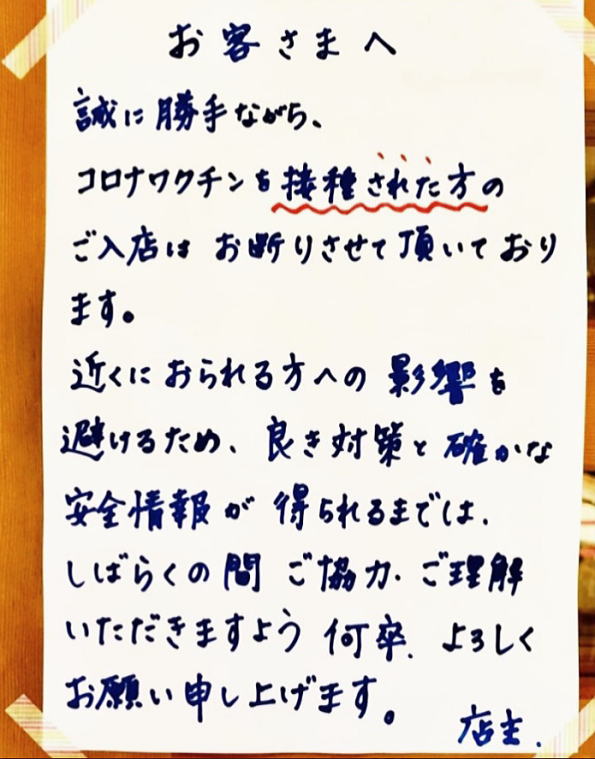 お客さまへ
誠に勝手ながら、
コロナワクチンを接種された方の
ご入店は お断りさせて頂いており
ます。
近くにおられる方への 影響を
避けるため、良き対策と確かな
安全情報が 得られるまでは、
しばらくの間 ご協力・ご理解
いただきますよう 何卒、よろしく
お願い申し上げます。
店主.